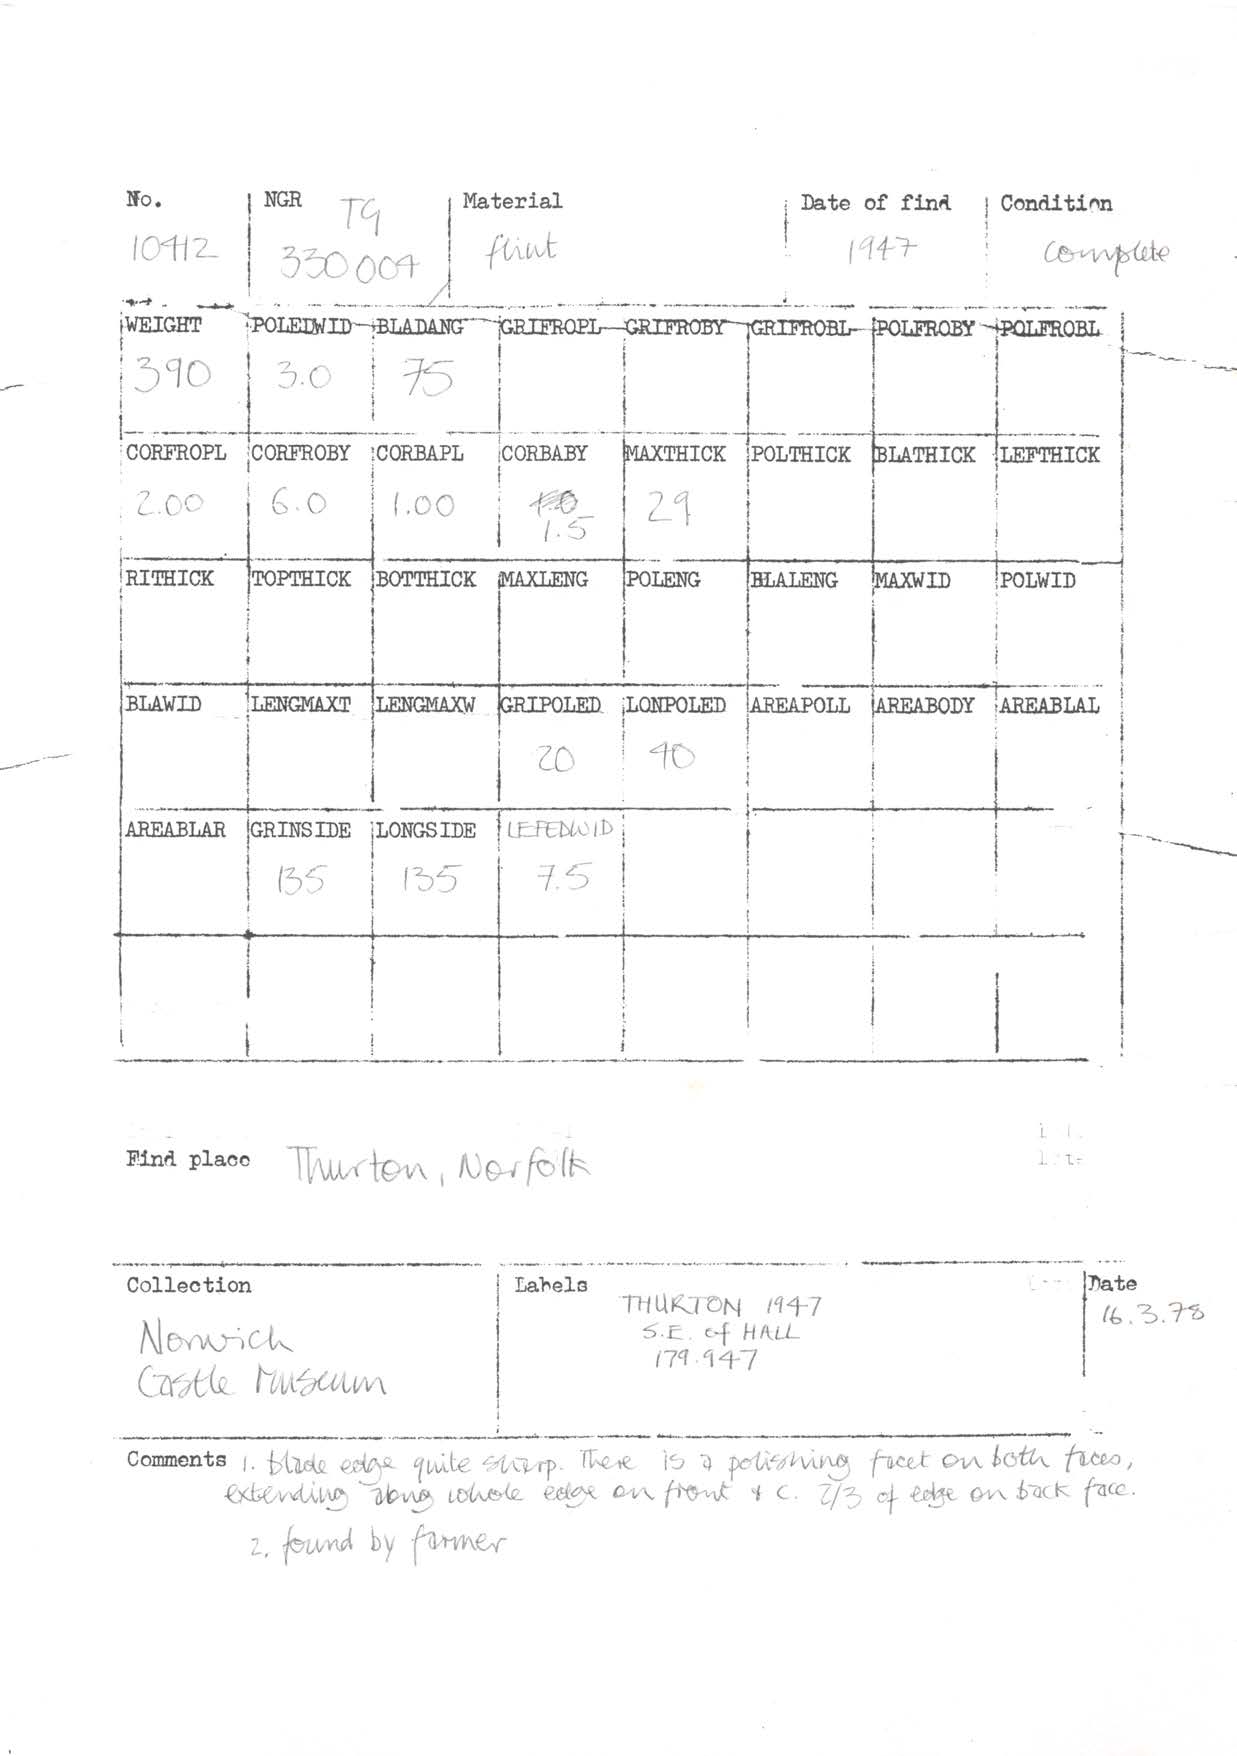 No. NGR Material Date of find Condition
TG
10412 330 004 flint 1947 complete
WEIGHT POLEDWID BLADANG GRIFROPL GRIFROBY GRIFROBL POLFROBY POLFROBL
390 3.0 75
CORFROPL CORFROBY CORBAPL CORBABY MAXTHICK POLTHICK BLATHICK LEFTHICK
2.00 6.0 1.00 29
1.5
RITHICK TOPTHICK BOTTHICK MAXLENG POLENG BLALENG MAXWID POLWID
BLAWID LENGMAXT LENGMAXW GRIPOLED LONPOLED AREAPOLL AREABODY AREABLAL
20 40
AREABLAR GRINSIDE LONGSIDE LEFEDWID
135 135 7.5
Find place Thurton, Norfolk
Collection Labels Date
THURTON 1947 16.3.78
S.E. of HALL
Norwich 179.947
Castle Museum
Comments 1. blade edge quite sharp. There is a polishing facet on both faces,
extending along whole edge on front & c. 2/3 of edge on back face.
2. found by farmer